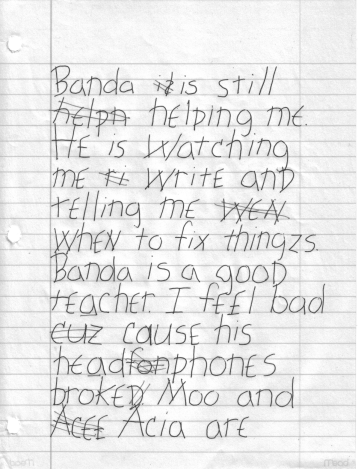 Banda it is still
helpn helping me.
HE is Watching
ME ri WritE anD
TElling ME WEN
WHEN to fix thingzs.
Banda is a gooD
tEachEr. I fEEl bad
cuz causE his
headfonphonEs
brokED Moo and
AcEE Acia arE